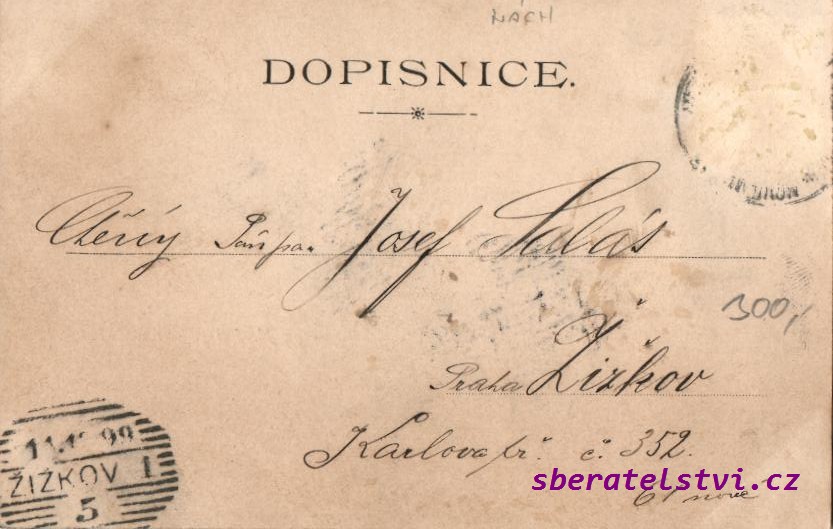 NÁCH
DOPISNICE.
Ctěný Pán pan Josef
300,
Praha Žižkov
Karlova tř. č. 352.
61 nové
11.12.99
ŽIŽKOV 1
5
sberatelstvi.cz